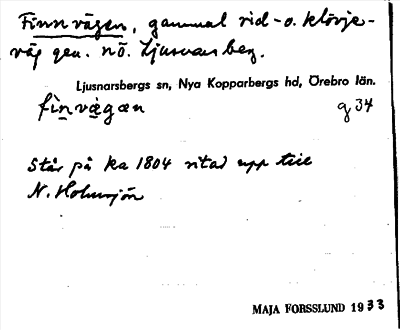 Finnvägen, gammal rid- o. klövje-
väg gen. nö. Ljusnarsberg.
Ljusnarsbergs sn, Nya Kopparbergs hd, Örebro län.
fìnvä̀gæn g 34
Står på ka 1804 ritad upp till
N. Holmsjön
MAJA FORSSLUND 1933